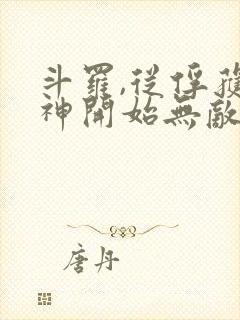 斗羅,從俘獲
神開始無敵
唐丹